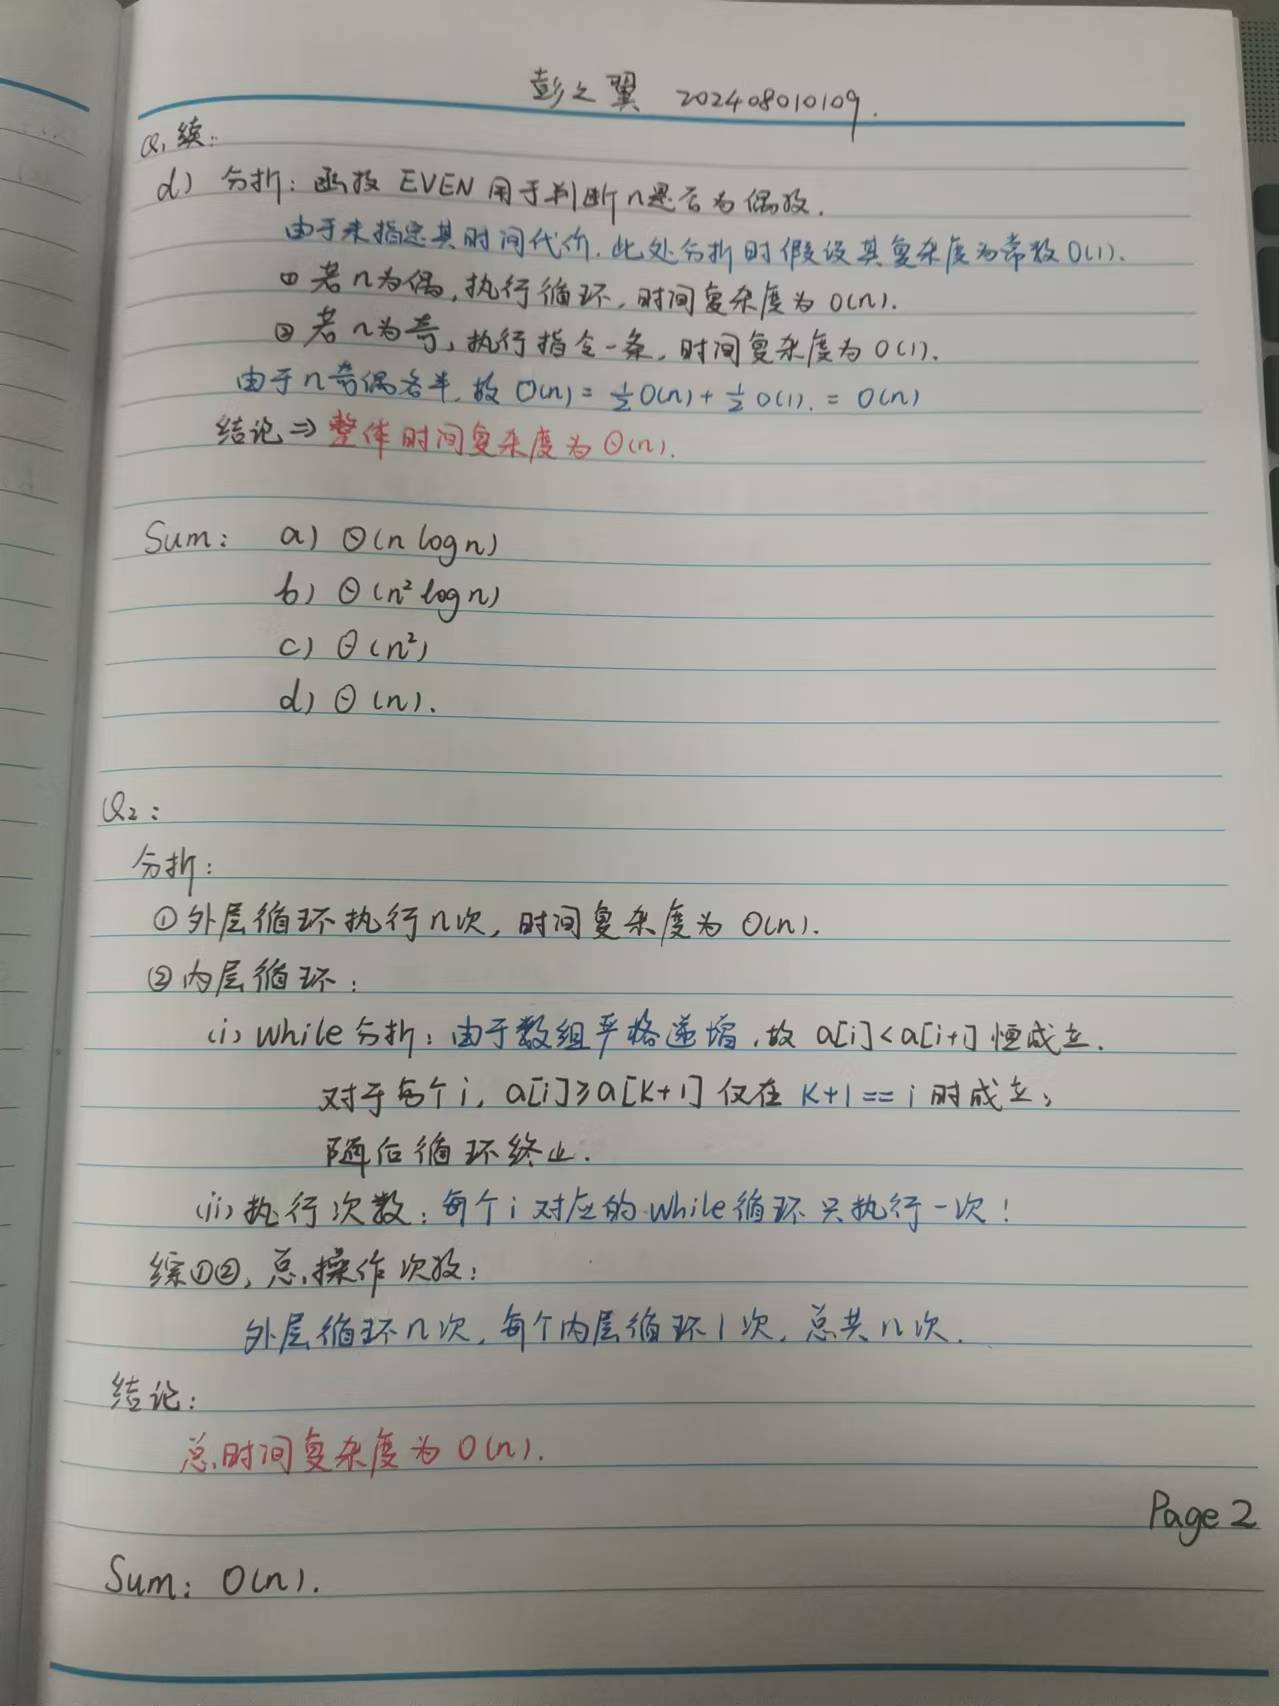 彭之翼 202408010109.
Q₁续:
d) 分析: 函数 EVEN 用于判断n是否为偶数.
由于未指定其时间代价. 此处分析时假设其复杂度为常数O(1).
① 若n为偶, 执行循环, 时间复杂度为 O(n).
② 若n为奇, 执行指令一条, 时间复杂度为 O(1).
由于n奇偶各半, 故 O(n) = ½O(n) + ½O(1). = O(n)
结论 ⇒ 整体时间复杂度为 Θ(n).
Sum: a) Θ(n log n)
b) Θ(n² log n)
c) Θ(n²)
d) Θ(n).
Q₂:
分析:
① 外层循环执行n次, 时间复杂度为 O(n).
② 内层循环:
(i) while分析: 由于数组严格递增, 故 a[i]<a[i+1] 恒成立.
对于每个i, a[i]≥a[k+1] 仅在 k+1==i 时成立,
随后循环终止.
(ii) 执行次数: 每个i对应的while循环只执行一次!
综①②, 总操作次数:
外层循环n次, 每个内层循环1次, 总共n次.
结论:
总时间复杂度为 O(n).
Page 2
Sum: O(n).